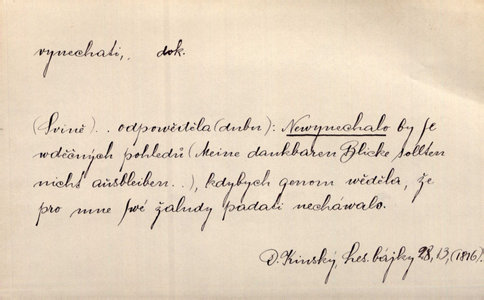 vynechati, dok.
(Svině) . . odpowěděla (dubu): Newynechalo by se
wděčných pohledů (Meine dankbaren Blicke sollten
nicht ausbleiben . .), kdybych genom wěděla, že
pro mne swé žaludy padati necháwalo.
D. Kinský, hes. bájky 28, 13, (1816).